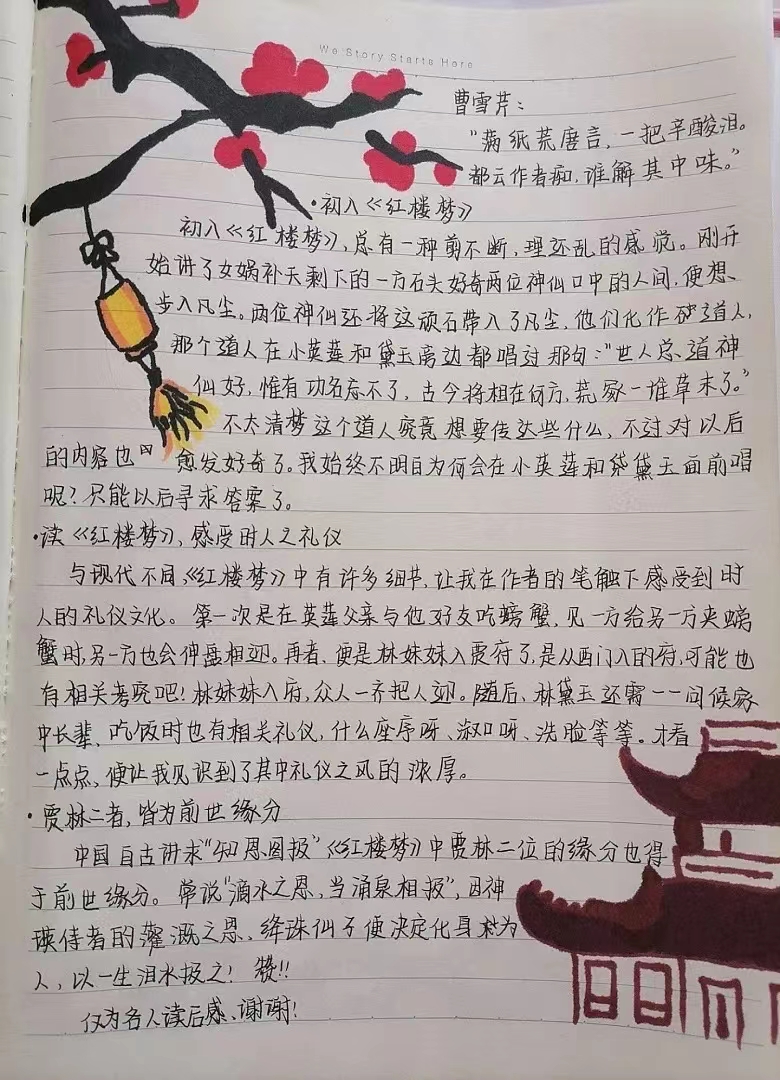 We Story Starts Here
曹雪芹：
“满纸荒唐言，一把辛酸泪。
都云作者痴，谁解其中味。”
·初入《红楼梦》
初入《红楼梦》，总有一种剪不断，理还乱的感觉。刚开
始讲了女娲补天剩下的一方石头好奇两位神仙口中的人间，便想、
步入凡尘。两位神仙还将这顽石带入了凡尘，他们化作破道人，
那个道人在小英莲和黛玉旁边都唱过那句：“世人总道神
仙好，惟有功名忘不了，古今将相在何方，荒冢一堆草末了。”
不太清梦这个道人究竟想要传达些什么，不过对以后
的内容也愈发好奇了。我始终不明白为何会在小英莲和黛玉面前唱
呢？只能以后寻求答案了。
·读《红楼梦》，感受时人之礼仪
与现代不同，《红楼梦》中有许多细节，让我在作者的笔触下感受到时
人的礼仪文化。第一次是在英莲父亲与他好友吃螃蟹，见一方给另一方夹螃
蟹时，另一方也会伸盘相迎。再者，便是林妹妹入贾府了，是从西门入的府，可能也
有相关考究吧！林妹妹入府，众人一齐把人迎。随后，林黛玉还需一一问候家
中长辈、吃饭时也有相关礼仪，什么座序呀、漱口呀、洗脸等等。才看
一点点，便让我见识到了其中礼仪之风的浓厚。
·贾林二者，皆为前世缘分
中国自古讲求“知恩图报”《红楼梦》中贾林二位的缘分也得
于前世缘分。常说“滴水之恩，当涌泉相报”，因神
瑛侍者的灌溉之恩、绛珠仙子便决定化身为
人，以一生泪水报之！赞!!
仅为名人读后感、谢谢！